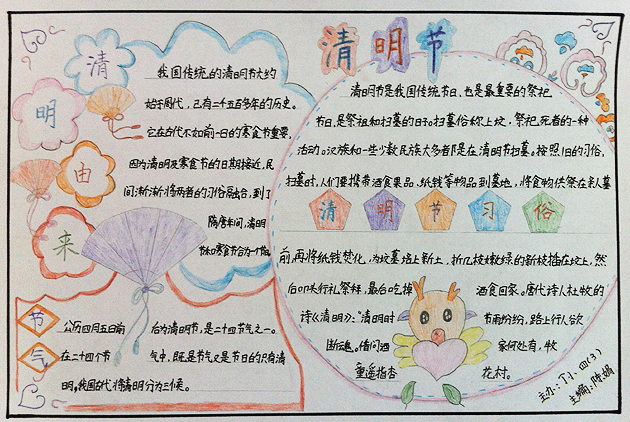 清明节
清
明
由
来
我国传统的清明节大约
始于周代,已有二千五百多年的历史。
它在古代不如前一日的寒食节重要,
因为清明及寒食节的日期接近,民
间渐渐将两者的习俗融合,到了
隋唐年间,清明
节和寒食节合为一个
节
气
公历四月五日前 后为清明节,是二十四节气之一。
在二十四个节 气中,既是节气又是节日的只有清
明,我国古代将清明分为三候。
清明节是我国传统节日,也是最重要的祭祀
节日,是祭祖和扫墓的日子。扫墓俗称上坟,祭祀死者的一种
活动。汉族和一些少数民族大多者是在清明节扫墓。按照旧的习俗,
扫墓时,人们要携带酒食果品、纸钱等物品到墓地,将食物供祭在亲人墓
清 明 节 习 俗
前,再将纸钱焚化,为坟墓培上新土,折几枝嫩绿的新枝插在坟上,然
后叩头行礼祭拜,最后吃掉 酒食回家。唐代诗人杜牧的
诗《清明》:“清明时 节雨纷纷,路上行人欲
断魂。借问酒 家何处有,牧
童遥指杏 花村。
主办:丁小、四(3)
主编:陈娟